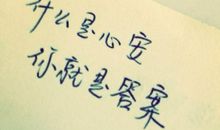 什么是心安
你就是答案